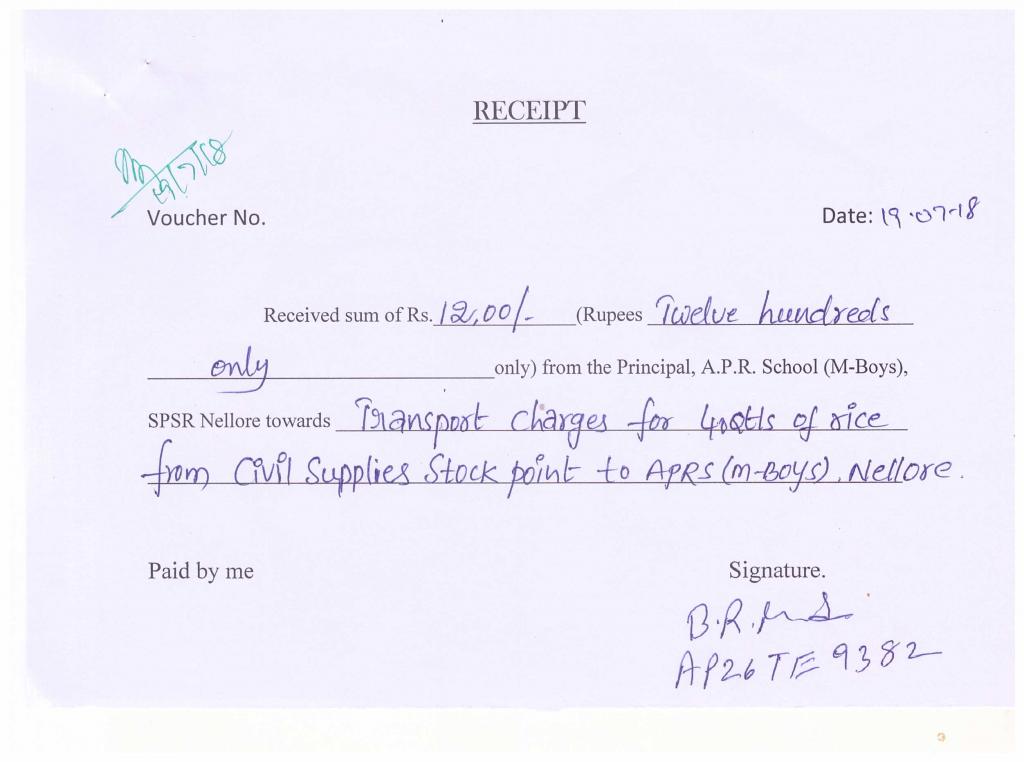 RECEIPT
Voucher No.
Date: 19.07-18
Received sum of Rs. 12,00/- (Rupees Twelve hundreds
only only) from the Principal, A.P.R. School (M-Boys),
SPSR Nellore towards Transport charges for 40Qtls of rice
from Civil Supplies Stock point to APRS (M-BOYS), Nellore.
Paid by me
Signature.
B.R.
AP26 TE 9382